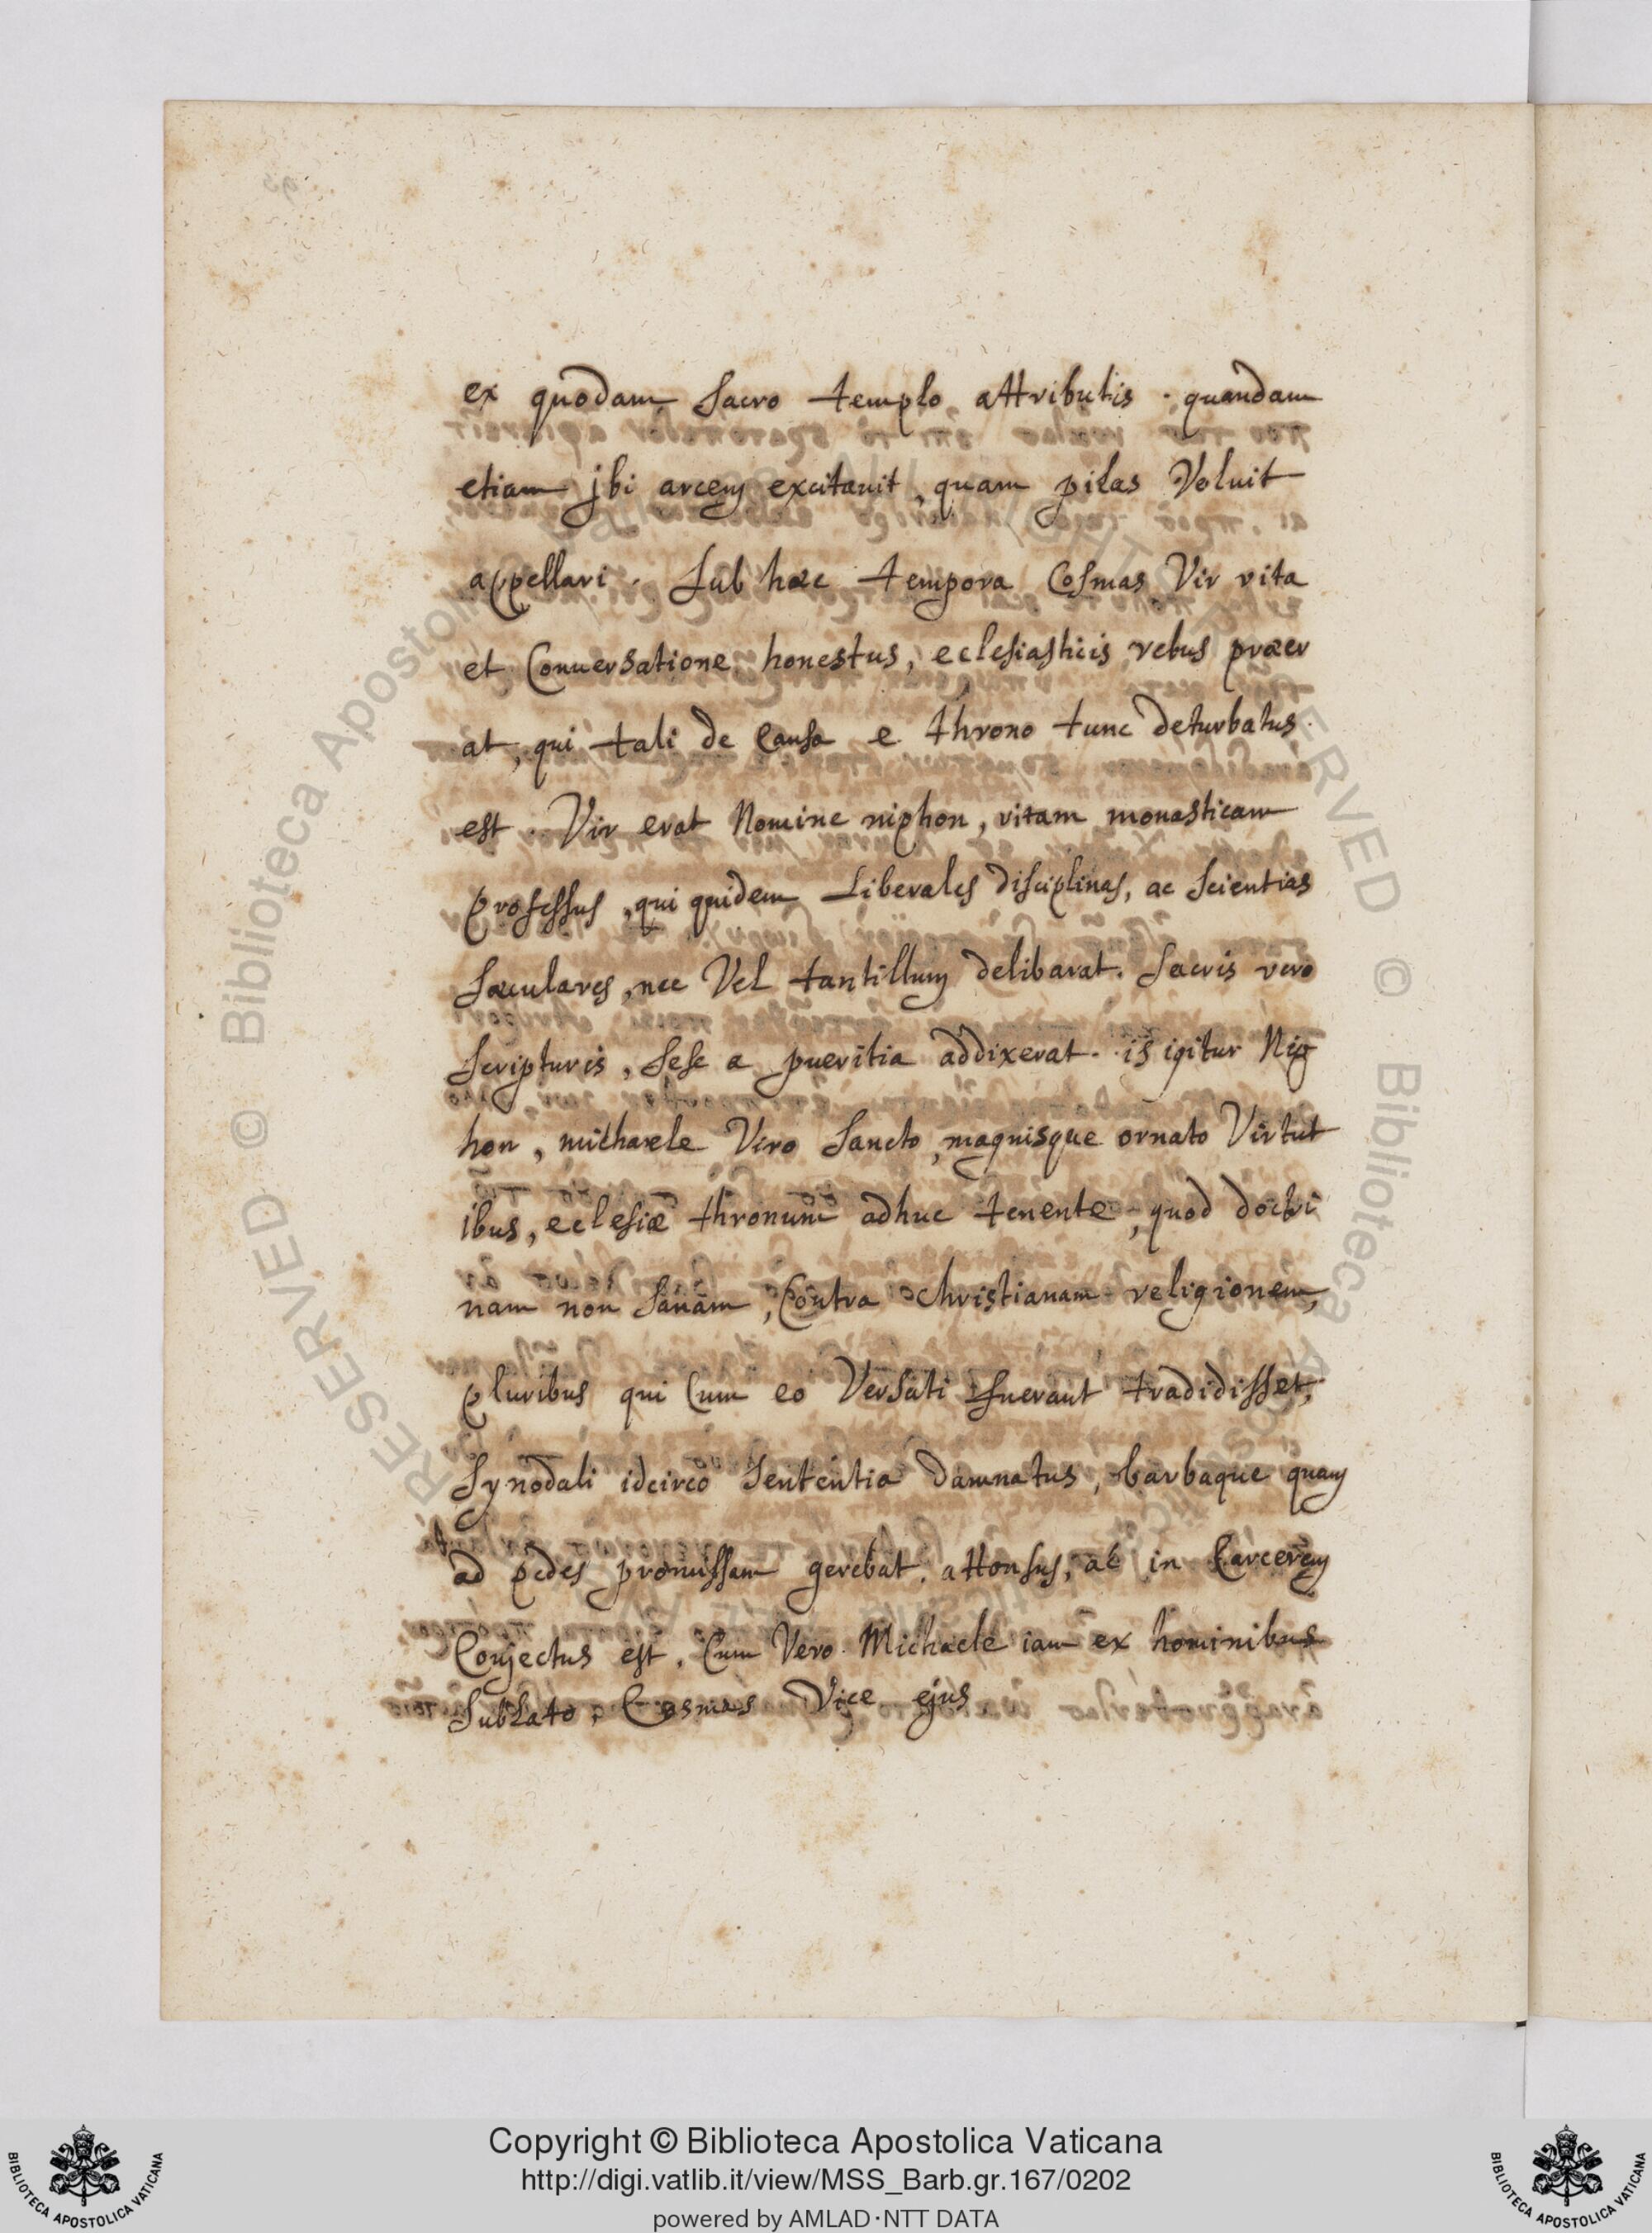 ex quodam sacro templo attributis. quandam
etiam jbi arcem excitauit, quam pilas Voluit
appellari. Sub hæc tempora Cosmas Vir vita
et Conuersatione honestus, eclesiasticis rebus præer
at, qui tali de Causa e throno tunc deturbatus
est. Vir erat Nomine niphon, vitam monasticam
professus, qui quidem Liberales disciplinas, ac scientias
sæculares, nec Vel tantillum delibarat. Sacris vero
scripturis, sese a pueritia addixerat. is igitur Nip
hon, michaele Viro Sancto, magnisque ornato Virtut
ibus, eclesiæ thronum adhuc tenente, quod doctri
nam non sanam, Contra christianam religionem,
pluribus qui Cum eo Versati fuerant tradidisset,
Synodali idcirco sententia damnatus, barbaque quam
ad pedes promissam gerebat, attonsus, ac in Carcerem
Conjectus est. Cum Vero Michaele iam ex hominibus
sublato, Cosmas Vice ejus
Copyright © Biblioteca Apostolica Vaticana
http://digi.vatlib.it/view/MSS_Barb.gr.167/0202
powered by AMLAD·NTT DATA
BIBLIOTECA APOSTOLICA VATICANA
BIBLIOTECA APOSTOLICA VATICANA